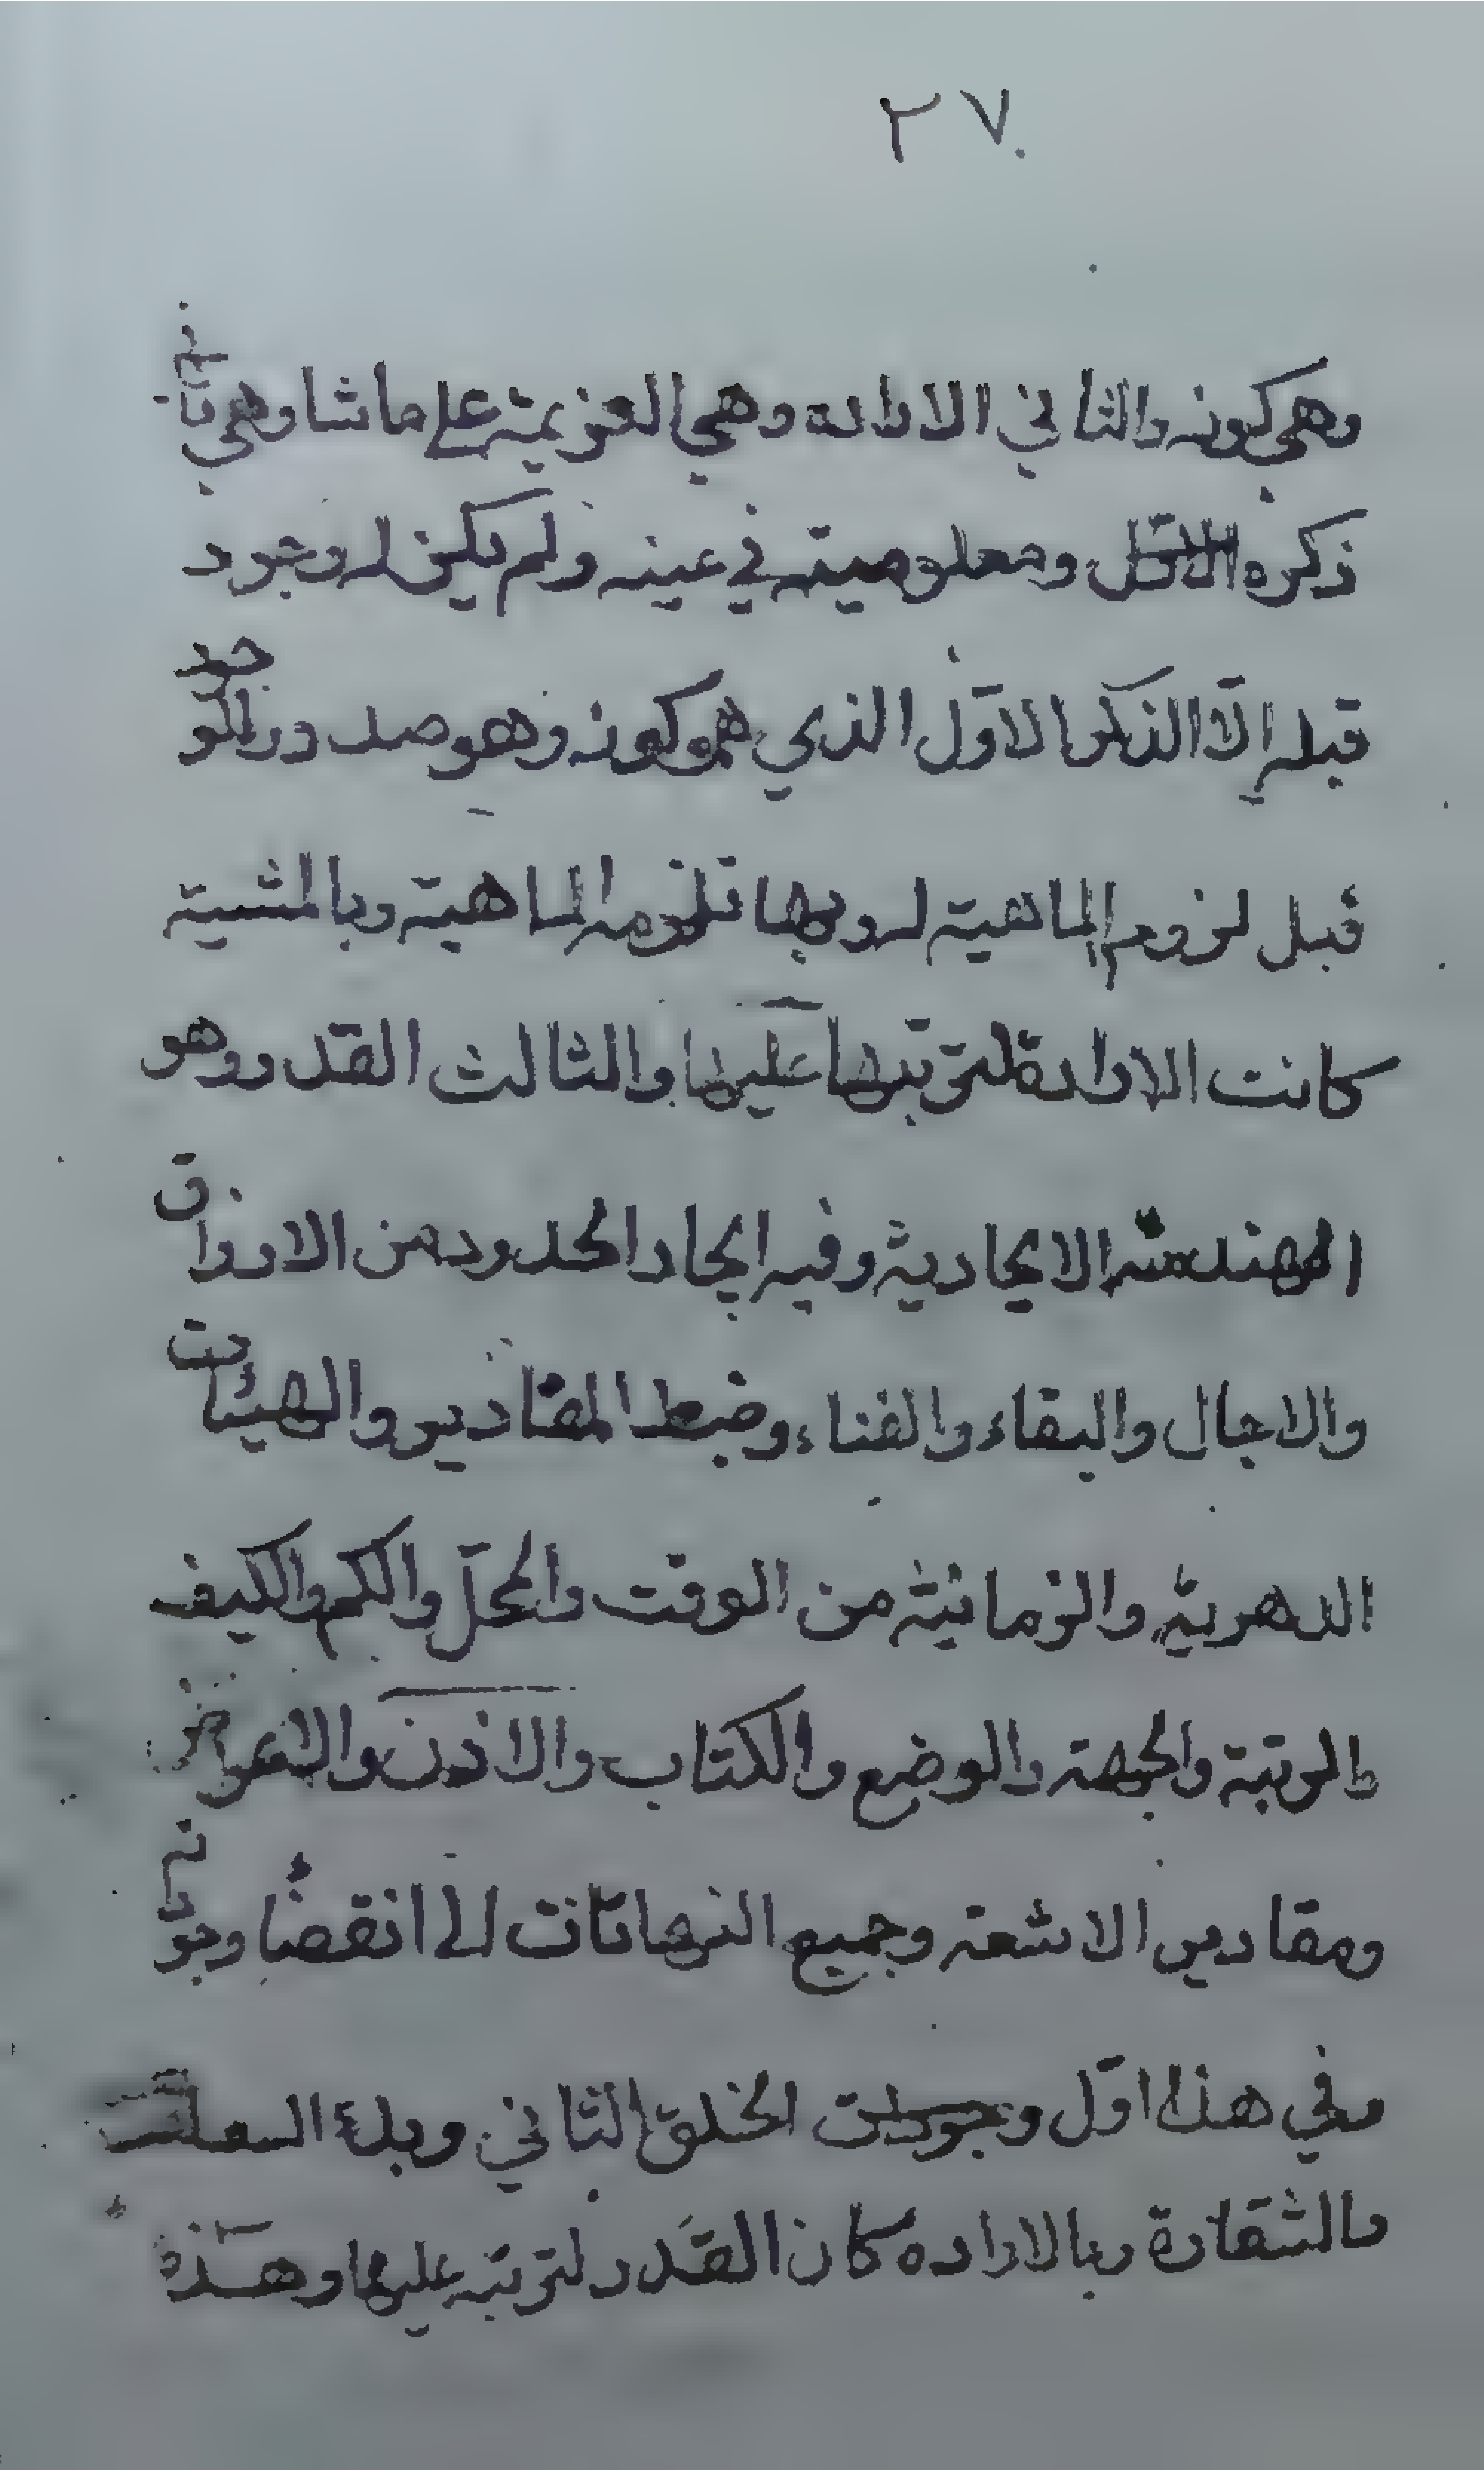 ٢٧
وهي كونه والثاني الارادة وهي العزيمة على ماشا وهي ثاني
ذكره الاول ومعلوميته في عينه ولم يكن له وجود
قبله الّا الذكر الاوّل الذي هو كونه وهو صدور الوجود
قبل لزوم الماهية له وبها تلزمه الماهية وبالمشية
كانت الارادة لترتبها عليها والثالث القدر وهو
الهندسة الايجادية وفيه ايجاد الحدود من الارزاق
والاجال والبقاء والفناء وضبط المقادير والهيئات
الدهرية والزمانية من الوقت والمحلّ والكم والكيف
والرتبة والجهة والوضع والكتاب والاذن والاعراض
ومقادير الاشعة وجميع النهايات الى انقضاء وجوده
وفي هذا اوّل وجودات الخلق الثاني وبدء السعادة
والشقاوة وبالاراده كان القَدر لترتبه عليها وهذه